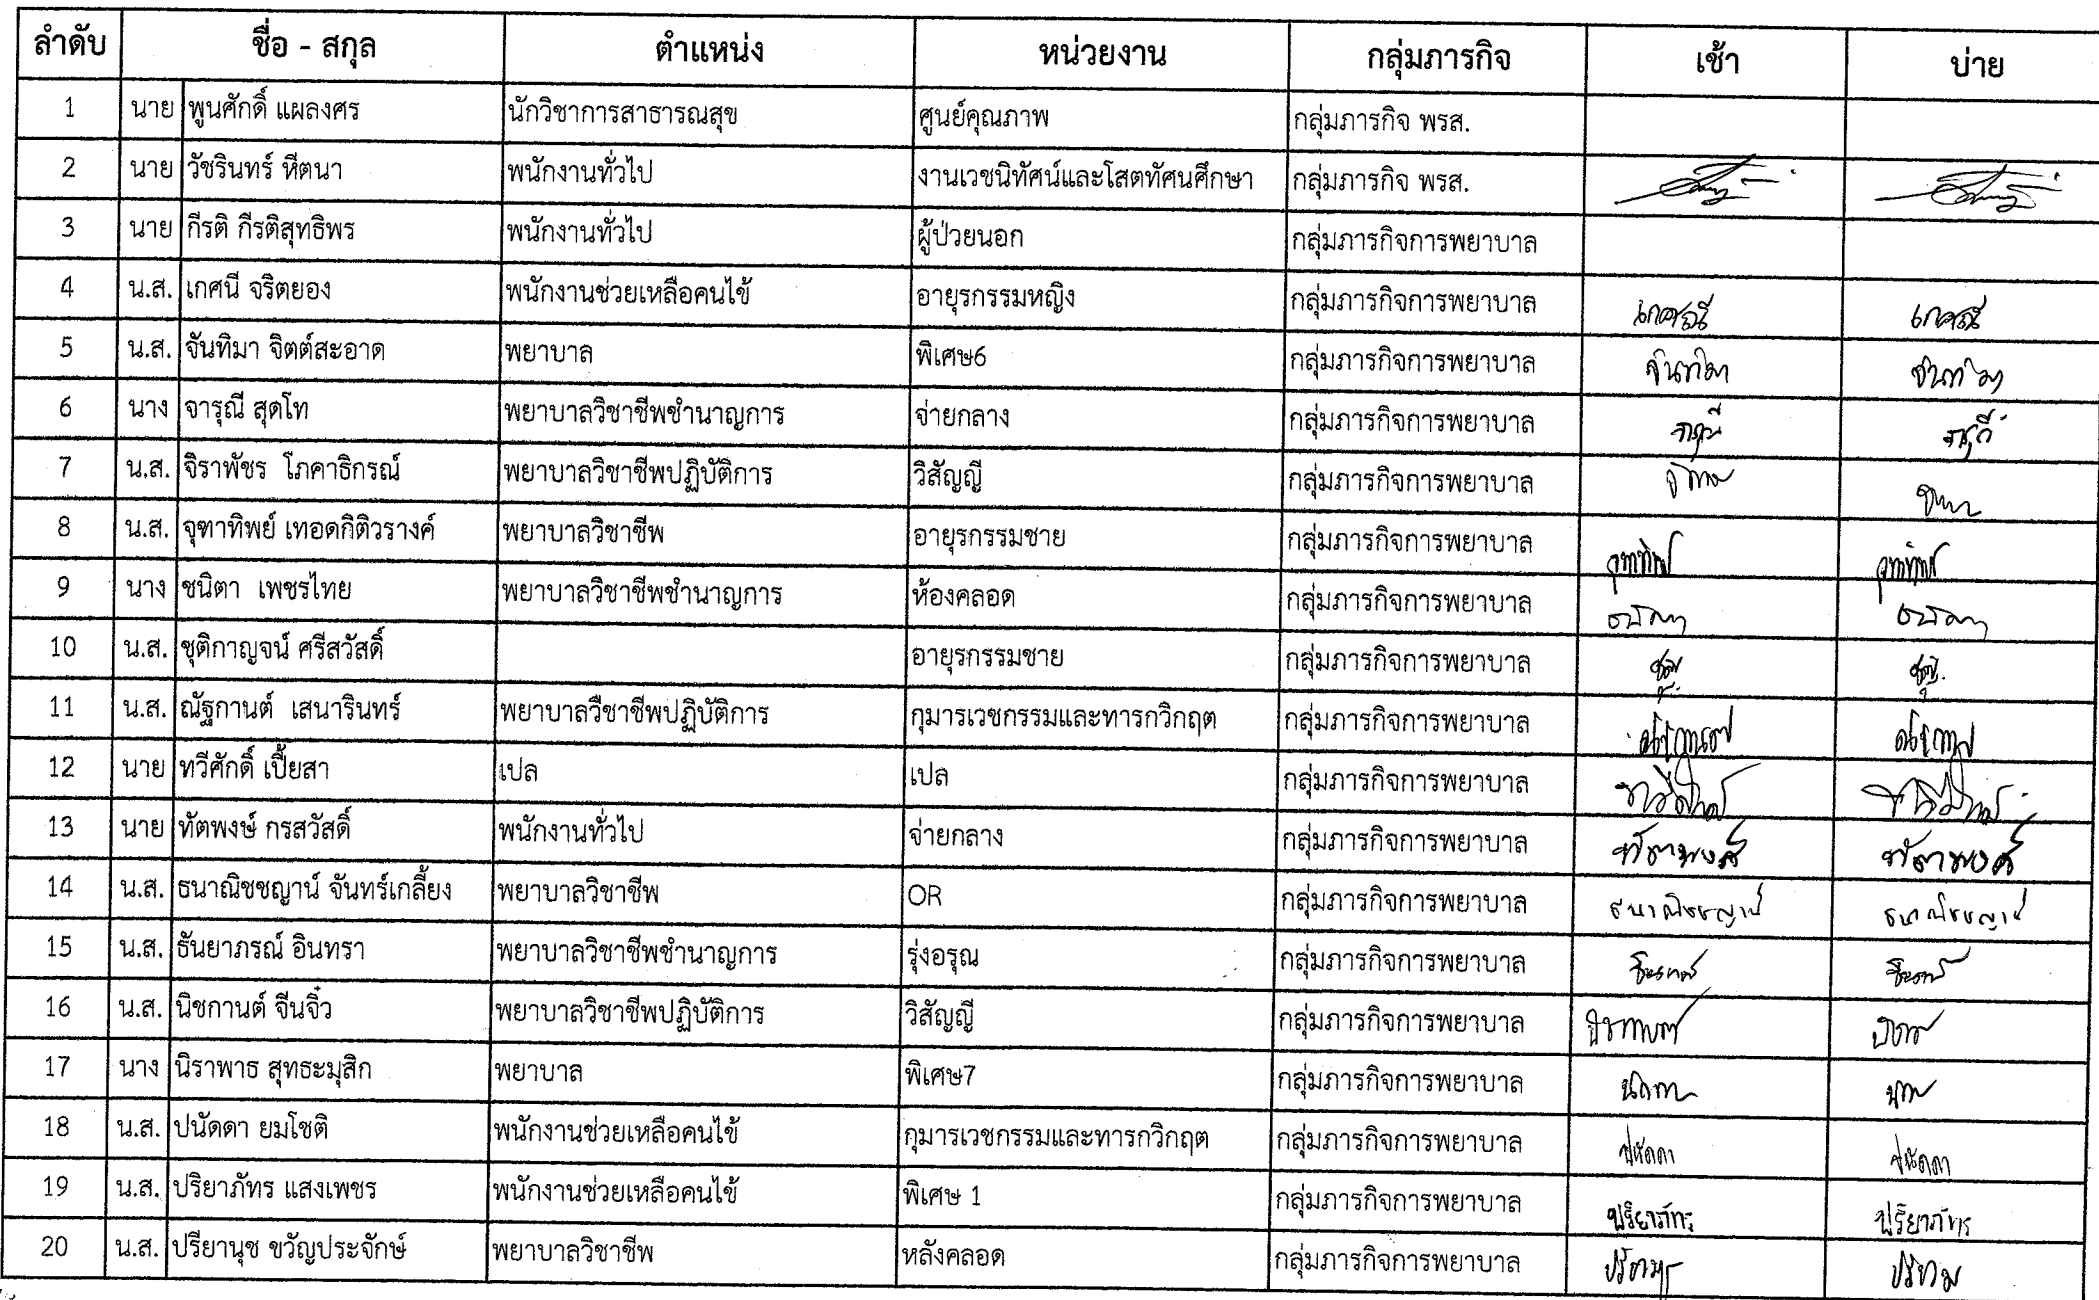 ลำดับ ชื่อ - สกุล ตำแหน่ง หน่วยงาน กลุ่มภารกิจ เช้า บ่าย
1 นาย พูนศักดิ์ แผลงศร นักวิชาการสาธารณสุข ศูนย์คุณภาพ กลุ่มภารกิจ พรส.
2 นาย วัชรินทร์ หีตนา พนักงานทั่วไป งานเวชนิทัศน์และโสตทัศนศึกษา กลุ่มภารกิจ พรส.
3 นาย กีรติ กีรติสุทธิพร พนักงานทั่วไป ผู้ป่วยนอก กลุ่มภารกิจการพยาบาล
4 น.ส. เกศนี จริตยอง พนักงานช่วยเหลือคนไข้ อายุรกรรมหญิง กลุ่มภารกิจการพยาบาล
5 น.ส. จันทิมา จิตต์สะอาด พยาบาล พิเศษ6 กลุ่มภารกิจการพยาบาล จันทิมา จันทิมา
6 นาง จารุณี สุดโท พยาบาลวิชาชีพชำนาญการ จ่ายกลาง กลุ่มภารกิจการพยาบาล
7 น.ส. จิราพัชร โภคาธิกรณ์ พยาบาลวิชาชีพปฏิบัติการ วิสัญญี กลุ่มภารกิจการพยาบาล
8 น.ส. จุฑาทิพย์ เทอดกิติวรางค์ พยาบาลวิชาชีพ อายุรกรรมชาย กลุ่มภารกิจการพยาบาล
9 นาง ชนิตา เพชรไทย พยาบาลวิชาชีพชำนาญการ ห้องคลอด กลุ่มภารกิจการพยาบาล
10 น.ส. ชุติกาญจน์ ศรีสวัสดิ์ อายุรกรรมชาย กลุ่มภารกิจการพยาบาล
11 น.ส. ณัฐกานต์ เสนารินทร์ พยาบาลวืชาชีพปฏิบัติการ กุมารเวชกรรมและทารกวิกฤต กลุ่มภารกิจการพยาบาล
12 นาย ทวีศักดิ์ เปี้ยสา เปล เปล กลุ่มภารกิจการพยาบาล
13 นาย ทัตพงษ์ กรสวัสดิ์ พนักงานทั่วไป จ่ายกลาง กลุ่มภารกิจการพยาบาล
14 น.ส. ธนาณิชชญาน์ จันทร์เกลี้ยง พยาบาลวิชาชีพ OR กลุ่มภารกิจการพยาบาล ธนาณิชชญาน์ ธนาณิชชญาน์
15 น.ส. ธันยาภรณ์ อินทรา พยาบาลวิชาชีพชำนาญการ รุ่งอรุณ กลุ่มภารกิจการพยาบาล
16 น.ส. นิชกานต์ จีนจิ๋ว พยาบาลวิชาชีพปฏิบัติการ วิสัญญี กลุ่มภารกิจการพยาบาล
17 นาง นิราพาธ สุทธะมุสิก พยาบาล พิเศษ7 กลุ่มภารกิจการพยาบาล
18 น.ส. ปนัดดา ยมโชติ พนักงานช่วยเหลือคนไข้ กุมารเวชกรรมและทารกวิกฤต กลุ่มภารกิจการพยาบาล ปนัดดา ปนัดดา
19 น.ส. ปริยาภัทร แสงเพชร พนักงานช่วยเหลือคนไข้ พิเศษ 1 กลุ่มภารกิจการพยาบาล ปริยาภัทร ปริยาภัทร
20 น.ส. ปรียานุช ขวัญประจักษ์ พยาบาลวิชาชีพ หลังคลอด กลุ่มภารกิจการพยาบาล